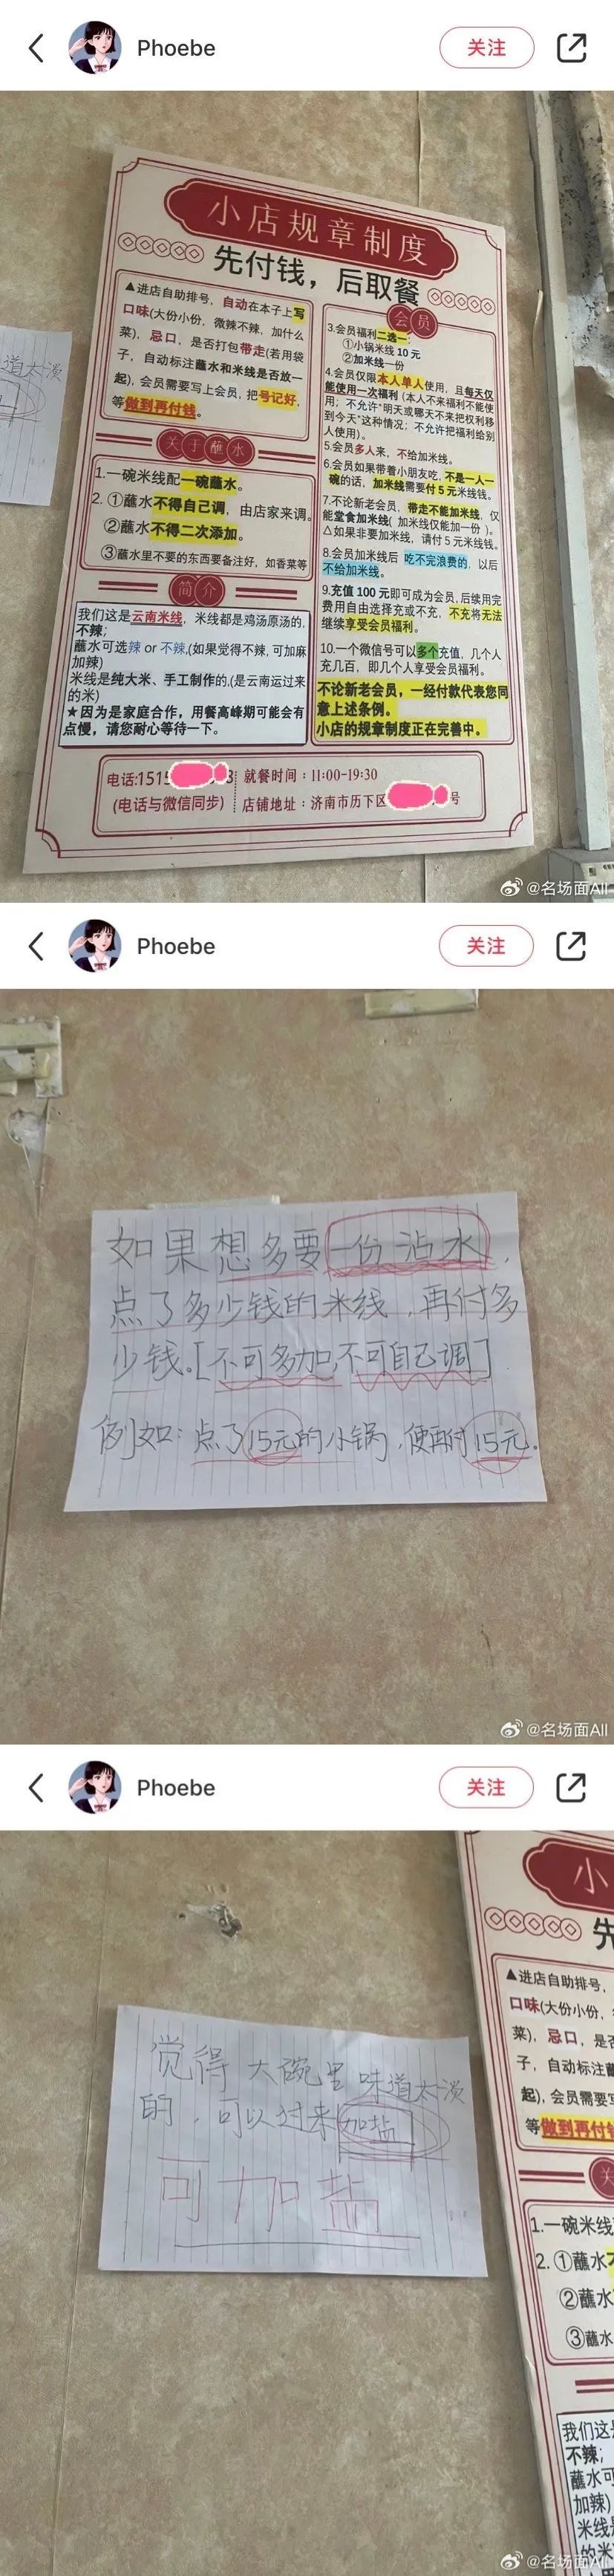 Phoebe
关注
小店规章制度
先付钱，后取餐
▲进店自助排号，自动在本子上写
口味(大份小份，微辣不辣，加什么
菜)，忌口，是否打包带走(若用袋
子，自动标注蘸水和米线是否放一
起)，会员需要写上会员，把号记好，
等做到再付钱。
关于蘸水
1.一碗米线配一碗蘸水。
2. ①蘸水不得自己调，由店家来调。
②蘸水不得二次添加。
③蘸水里不要的东西要备注好，如香菜等
简介
我们这是云南米线，米线都是鸡汤原汤的，
不辣；
蘸水可选辣 or 不辣,(如果觉得不辣, 可加麻
加辣)
米线是纯大米、手工制作的,(是云南运过来
的米)
★因为是家庭合作，用餐高峰期可能会有
点慢，请您耐心等待一下。
会员
3.会员福利二选一：
①小锅米线 10 元
②加米线一份
4.会员仅限本人单人使用，且每天仅
能使用一次福利 (本人不来福利不能使
用；不允许“明天或哪天不来把权利移
到今天”这种情况；不允许把福利给别
人使用)。
5.会员多人来，不给加米线。
6.会员如果带着小朋友吃, 不是一人一
碗的话，加米线需要付 5 元米线钱。
7.不论新老会员，带走不能加米线，仅
能堂食加米线( 加米线仅能加一份 )。
△如果非要加米线，请付 5 元米线钱。
8.会员加米线后 吃不完浪费的，以后
不给加米线。
9.充值 100 元即可成为会员, 后续用完
费用自由选择充或不充，不充将无法
继续享受会员福利。
10.一个微信号可以多个充值，几个人
充几百，即几个人享受会员福利。
不论新老会员，一经付款代表您同
意上述条例。
小店的规章制度正在完善中。
电话:1515
3
(电话与微信同步)
就餐时间：11:00-19:30
店铺地址：济南市历下区
号
道太淡
@名场面All
Phoebe
关注
如果想多要一份沾水，
点了多少钱的米线，再付多
少钱。[不可多加,不可自己调]
例如：点了15元的小锅，便再付15元。
@名场面All
Phoebe
关注
觉得大碗里味道太淡
的，可以过来加盐
可加盐
小
先
▲进店自助排号，
口味(大份小份，
菜)，忌口，是否
子，自动标注蘸
起)，会员需要写
等做到再付钱
关
1.一碗米线
2. ①蘸水不
②蘸水
③蘸水
我们这是
不辣；
蘸水可
加辣)
米线是
的米
@名场面All